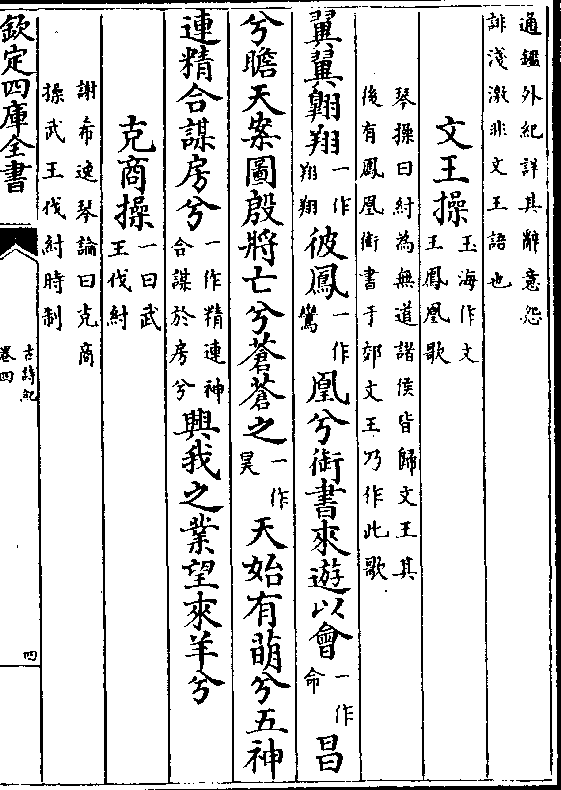 通鑑外紀詳其辭意怨
誹淺激非文王語也
文王操玉海作文王鳳凰歌
琴操曰紂為無道諸侯皆歸文王其
後有鳳凰銜書于郊文王乃作此歌
翼翼翺翔一作翔翔彼鳳一作鸞凰兮銜書來遊以會一作命昌
兮瞻天案圖殷將亡兮蒼蒼之一作昊天始有萌兮五神
連精合謀房兮一作精連神合謀於房兮興我之業望來羊兮
克商操一曰武王伐紂
謝希逸琴論曰克商
操武王伐紂時制
欽定四庫全書
古詩紀
卷四
四